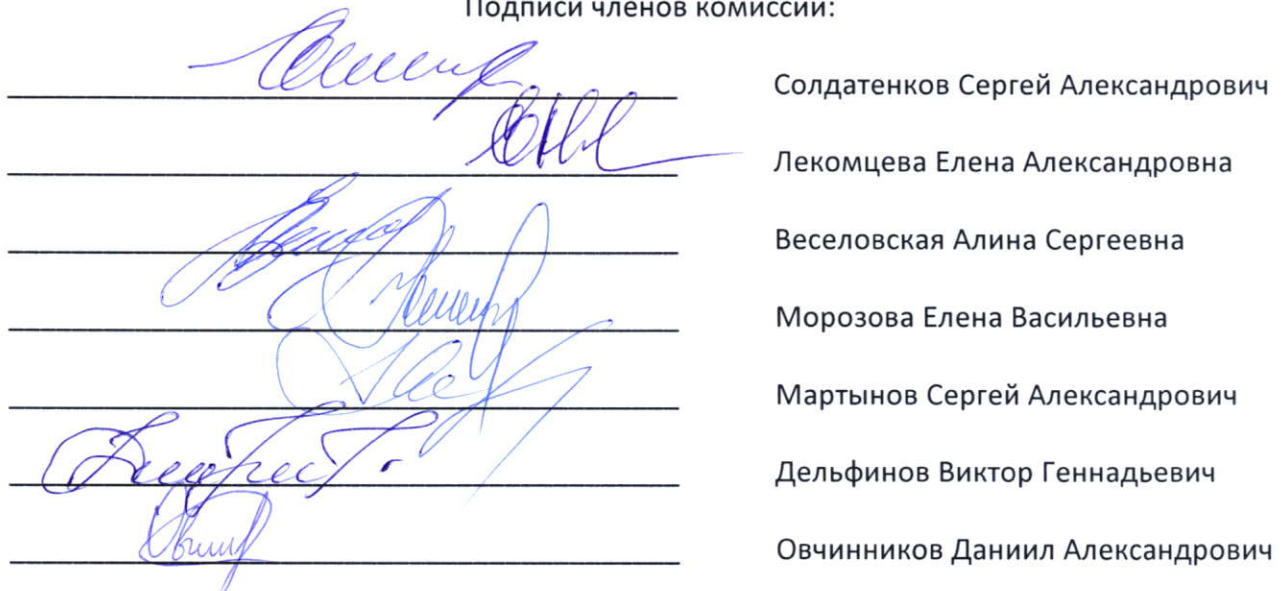 Подписи членов комиссии:
Солдатенков Сергей Александрович
Лекомцева Елена Александровна
Веселовская Алина Сергеевна
Морозова Елена Васильевна
Мартынов Сергей Александрович
Дельфинов Виктор Геннадьевич
Овчинников Даниил Александрович